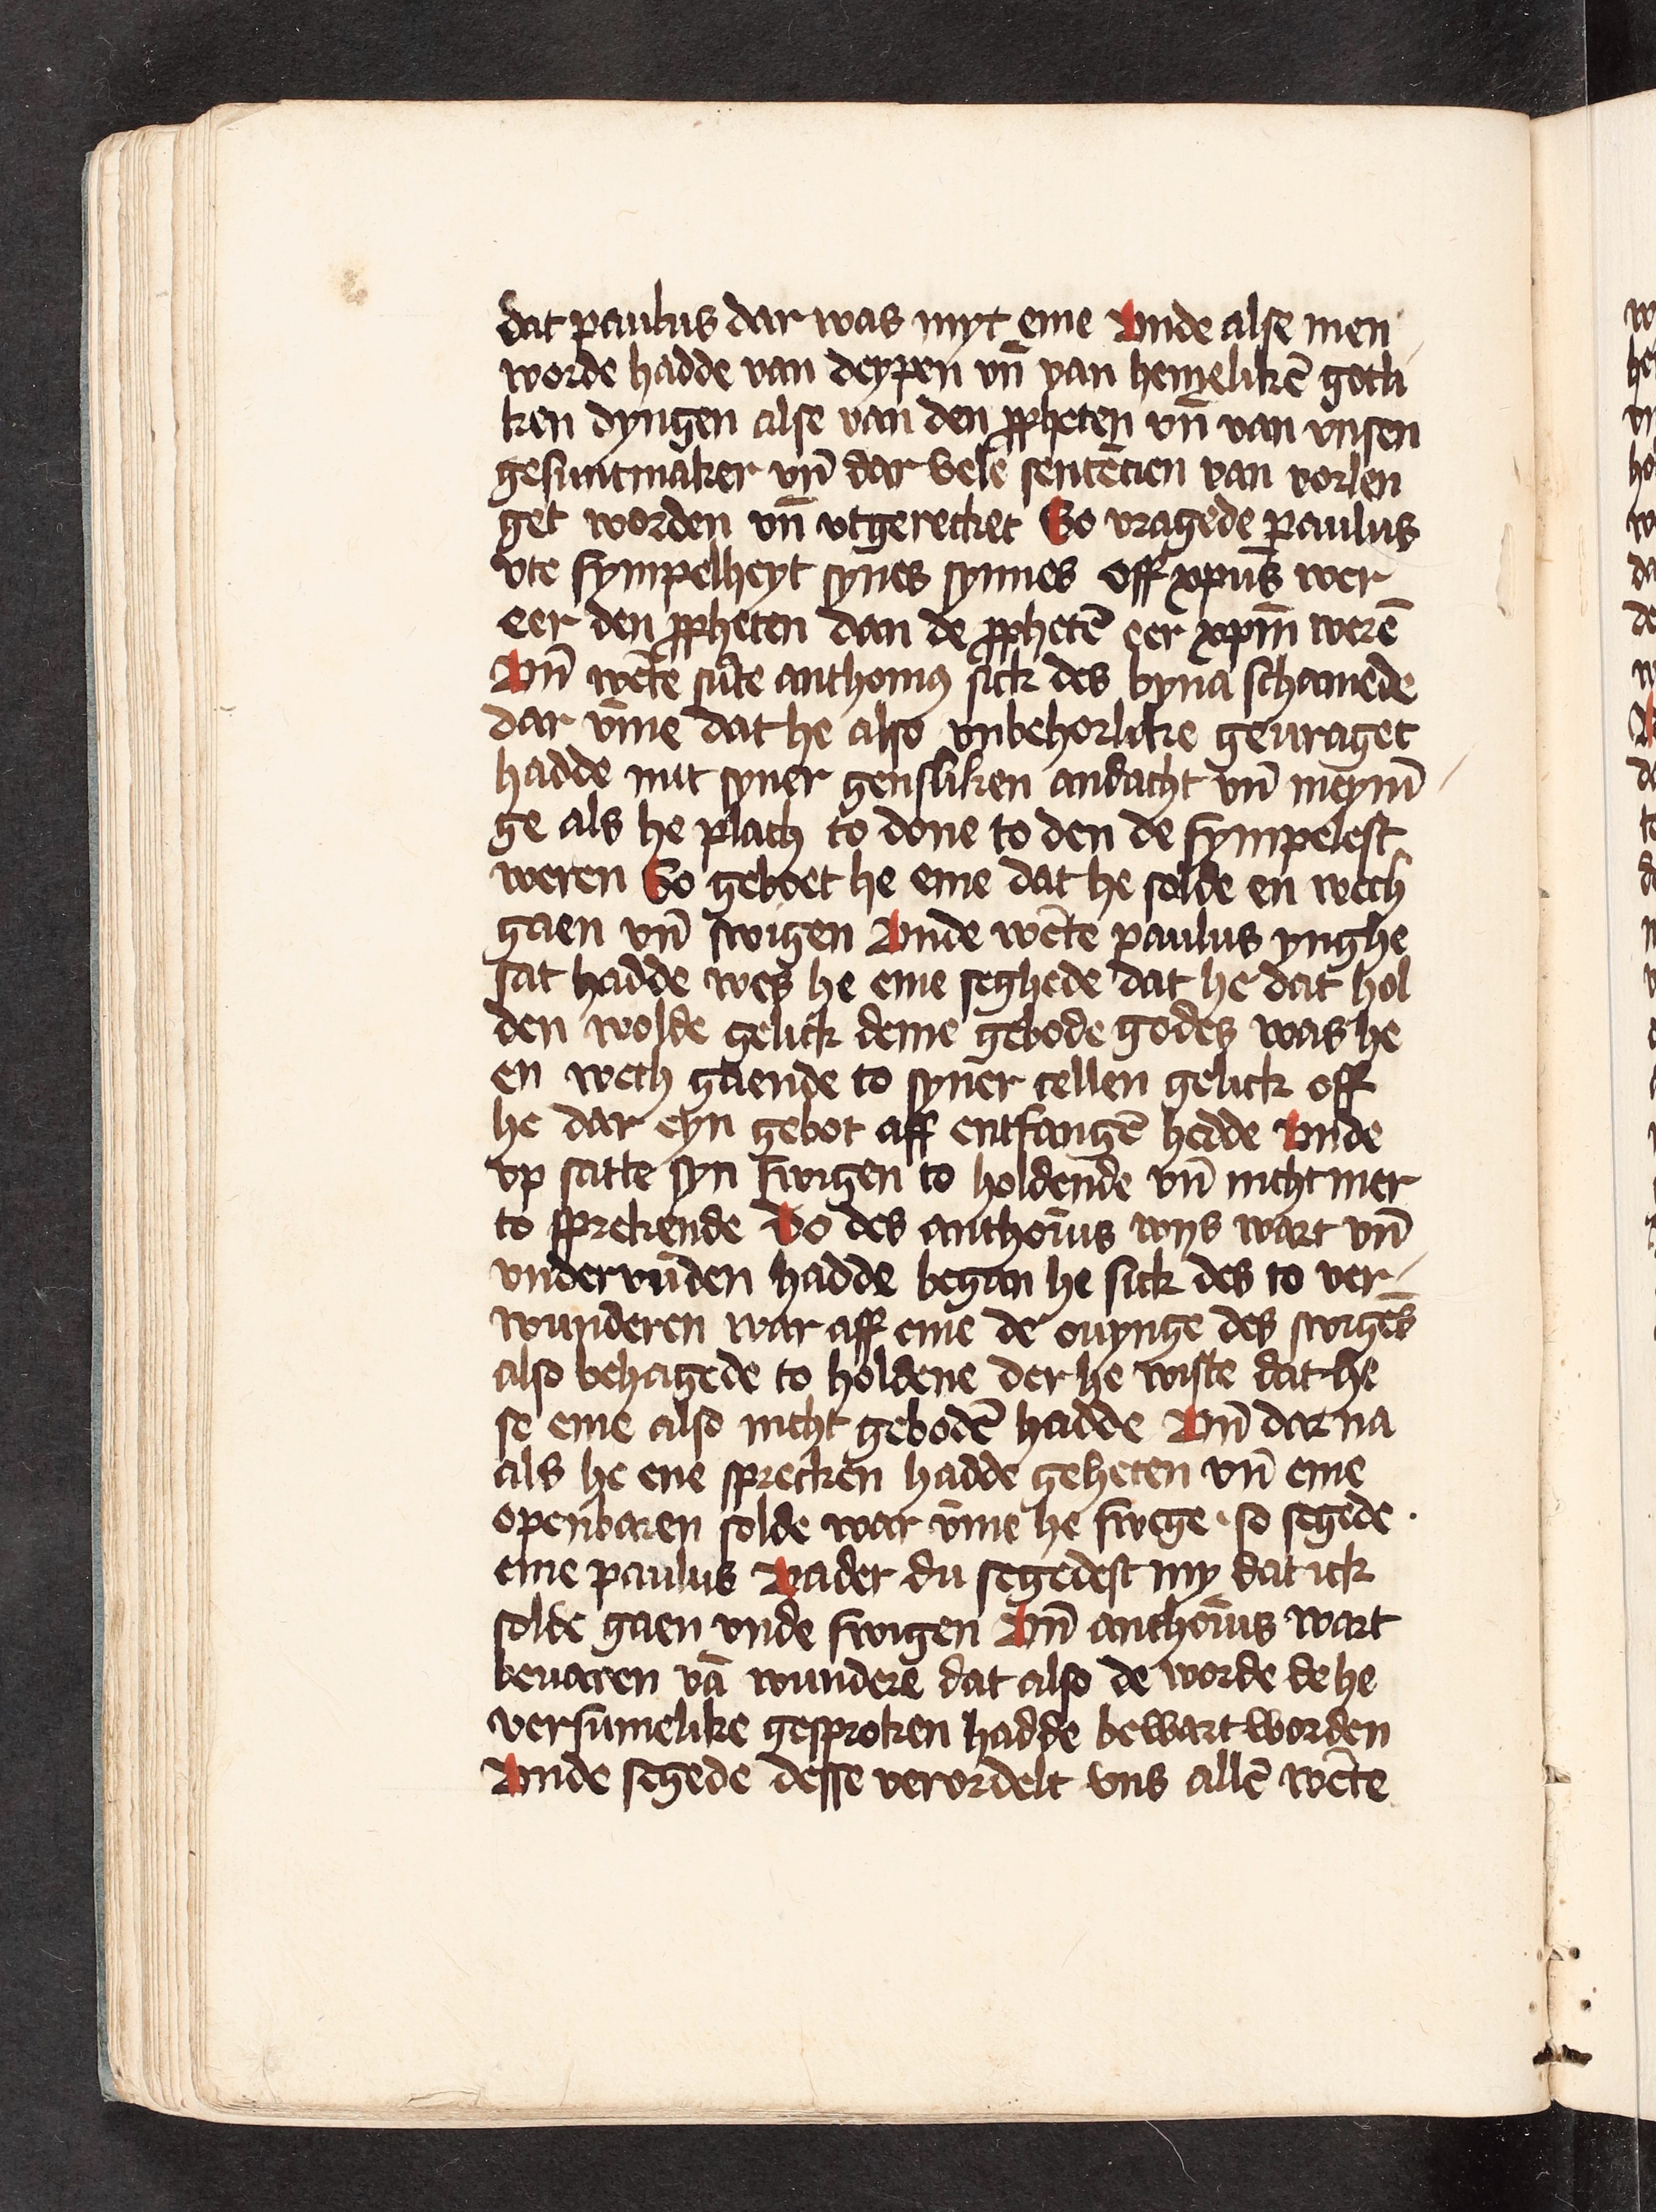 dat paulus dar was myt eme Vnde alse men
worde hadde van deypen vn̄ van hemelikē gotli
ken dyngen alse van den ꝓpheten vn̄ van vnsen
gesuntmaker vn̄ dar vele sentēcien van vorlen
get worden vn̄ vtgerecket So vragede paulus
vte sympelheyt synes synnes off xpūs wer
eer den ꝓpheten dan de ꝓphetē eer xpm̄ werē
Vn̄ wēte sūte anthoniꝰ sick des byna schamede
dar vm̄e dat he also vnbehorlike geuraget
hadde mit syner gensliken andacht vn̄ meynī
ge als he plach to done to den de sympelest
weren So geboet he eme dat he solde en wech
gaen vn̄ swigen Vnde wēte paulus ynghe
sat hadde wes he eme seghede dat he dat hol
den wolde gelick deme gebode godes was he
en wech gaende to syner cellen gelick off
he dar eyn gebot aff entfangē hedde Vnde
vp satte syn swigen to holdende vn̄ nicht mer
to sprekende Do des anthoīus wys wart vn̄
vndervūden hadde began he sick des to ver
wunderen war aff eme de ouynge des swigēs
also behagede to holdene der he wiste dat he
se eme also nicht gebodē hadde Vn̄ dar na
als he ene sprecken hadde geheten vn̄ eme
openbaren solde war vm̄e he swege · so segede ·
eme paulus Vader du segedest my dat ick
solde gaen vnde swigen Vn̄ anthoīus wart
beuaren vā wundere dat also de worde de he
versumelike gesproken hadde bewart worden
Vnde segede desse verordelt vns allē wēte